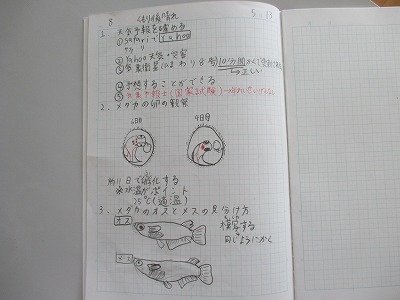 8 くもり後晴れ 5.13
1. 天気予報を確める
①safariで Yahoo
アプリ
②Yahoo天気・災害
③気象衛星ひまわり8号 10分間かくで
正しい
④予想することができる
⑤気象予報士(国家試験)
2. メダカの卵の観察
6日目 9日目
約11日で孵化する
※水温がポイント
25℃(適温)
3. メダカのオスとメスの見分け方
オス
模写する
同じようにかく
メス